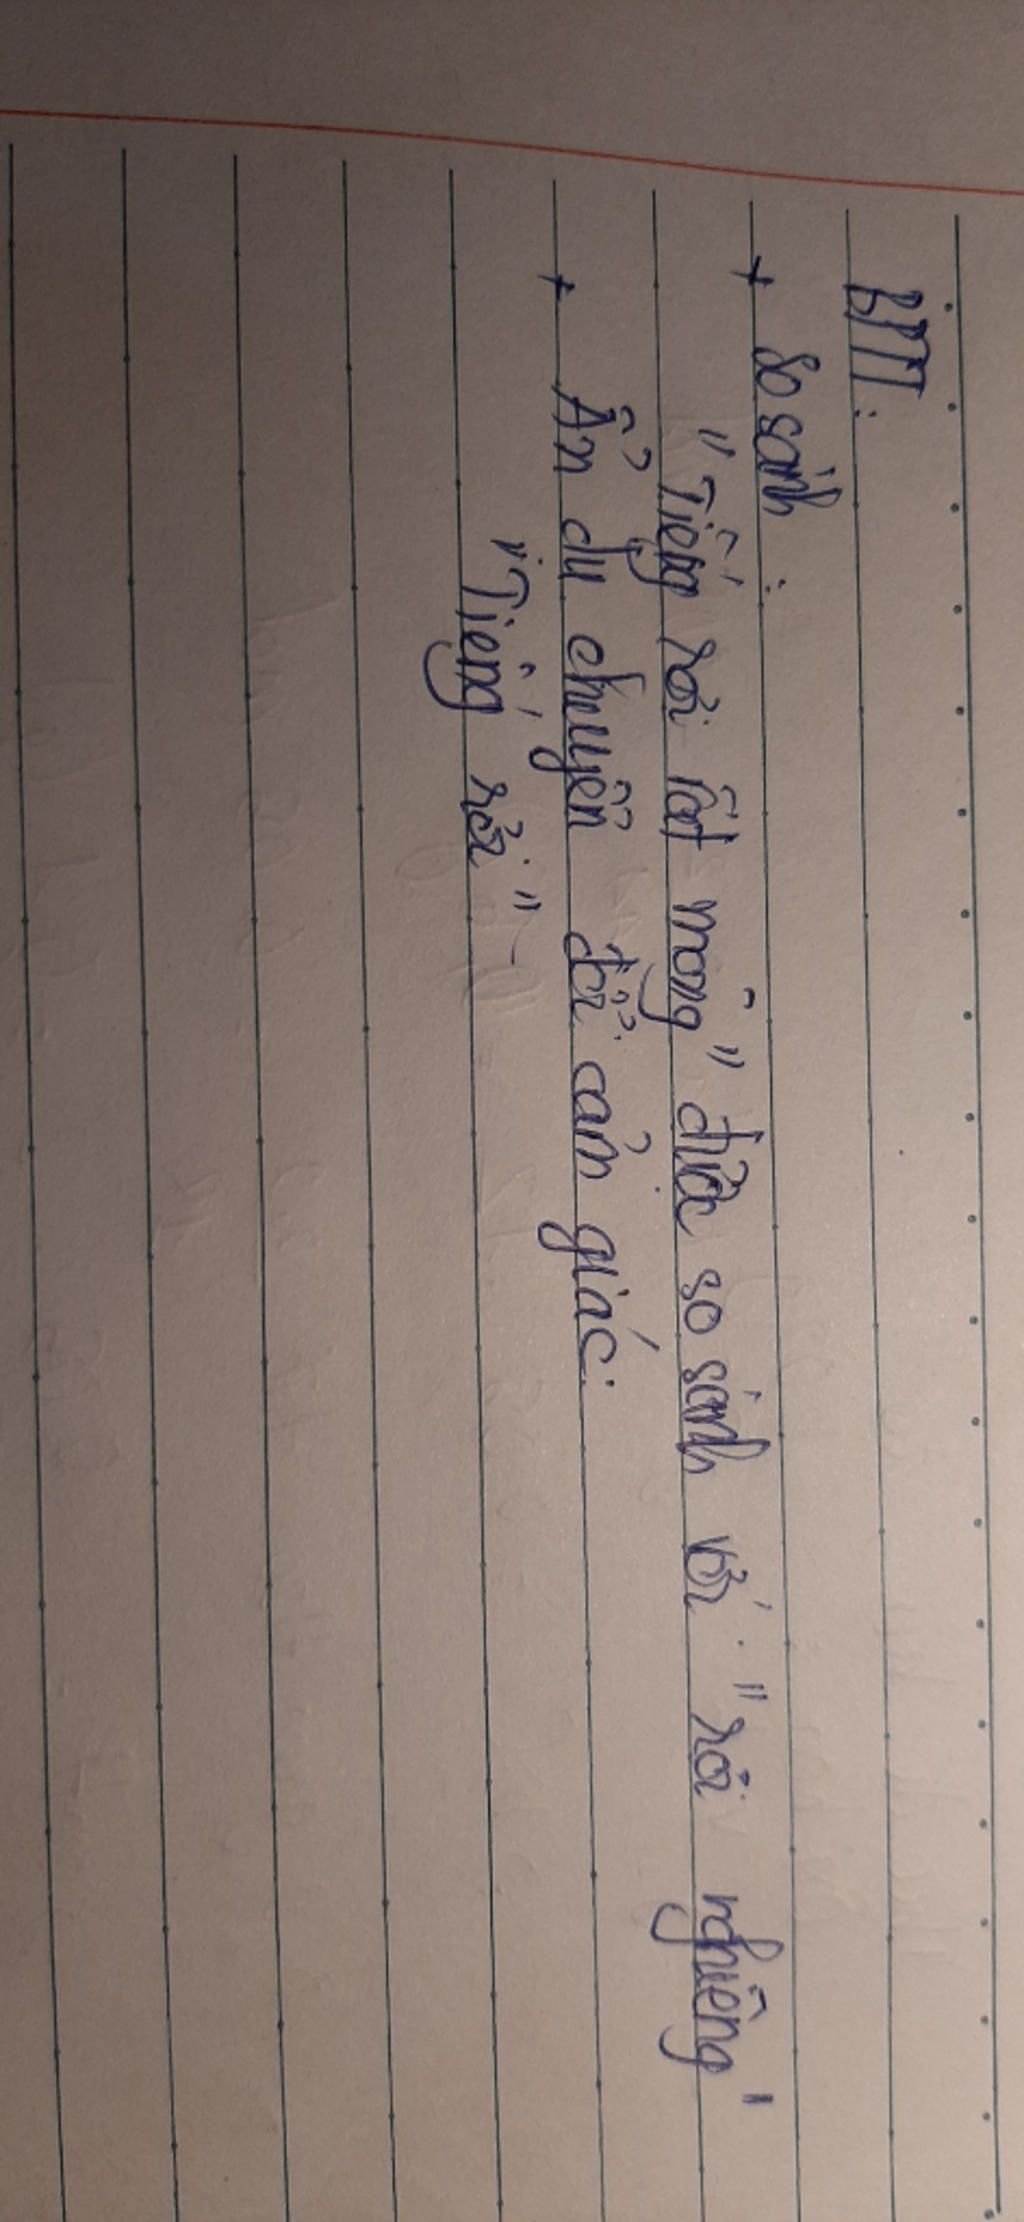 BPTT:
+ So sánh :
" Tiếng rơi rất mỏng " được so sánh với " rơi nghiêng "
+ Ẩn dụ chuyển đổi cảm giác:
" Tiếng rơi "